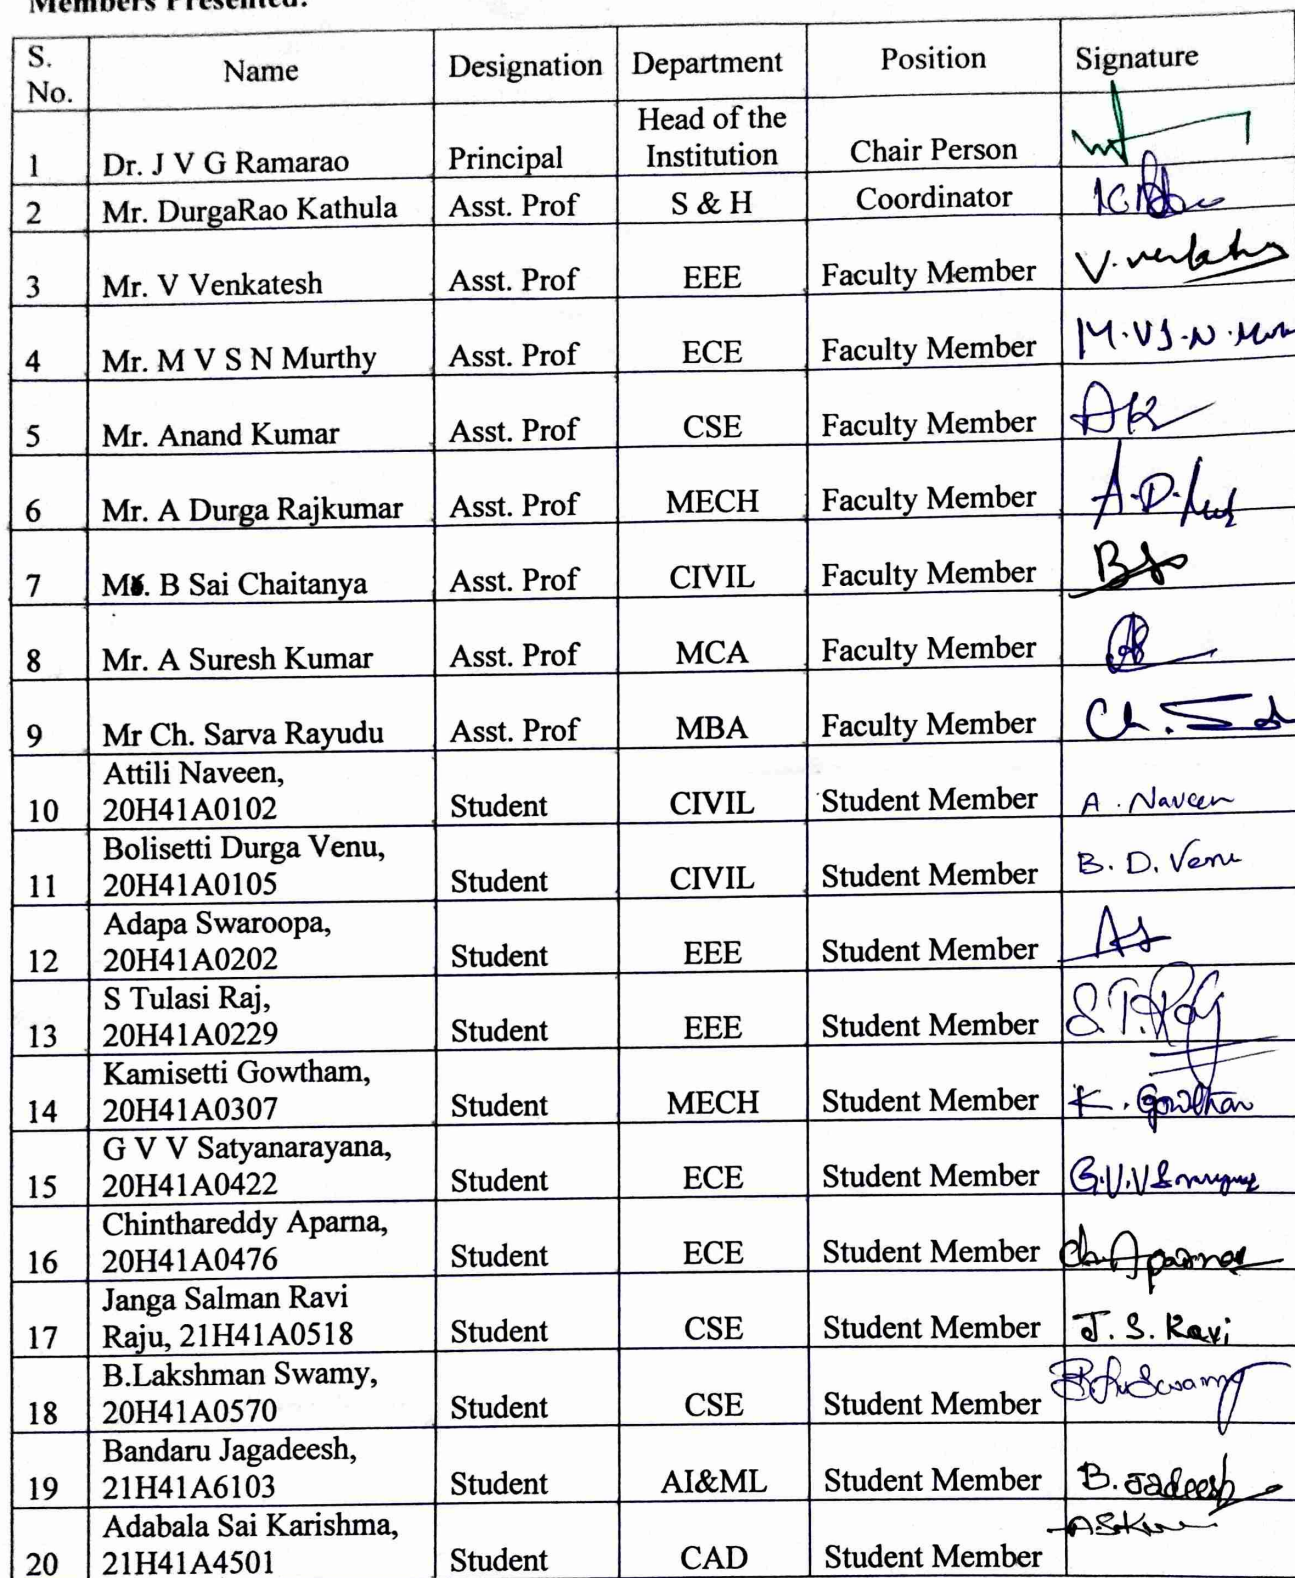 Members Presented:
S. No. Name Designation Department Position Signature
1 Dr. J V G Ramarao Principal Head of the Institution Chair Person
2 Mr. DurgaRao Kathula Asst. Prof S & H Coordinator
3 Mr. V Venkatesh Asst. Prof EEE Faculty Member V. Venkatesh
4 Mr. M V S N Murthy Asst. Prof ECE Faculty Member M.V.S.N.
5 Mr. Anand Kumar Asst. Prof CSE Faculty Member AK
6 Mr. A Durga Rajkumar Asst. Prof MECH Faculty Member A.D.
7 B Sai Chaitanya Asst. Prof CIVIL Faculty Member
8 Mr. A Suresh Kumar Asst. Prof MCA Faculty Member
9 Mr Ch. Sarva Rayudu Asst. Prof MBA Faculty Member Ch.
10 Attili Naveen, 20H41A0102 Student CIVIL Student Member A. Naveen
11 Bolisetti Durga Venu, 20H41A0105 Student CIVIL Student Member B. D. Venu
12 Adapa Swaroopa, 20H41A0202 Student EEE Student Member
13 S Tulasi Raj, 20H41A0229 Student EEE Student Member S.T.Raj
14 Kamisetti Gowtham, 20H41A0307 Student MECH Student Member K. Gowtham
15 G V V Satyanarayana, 20H41A0422 Student ECE Student Member G.V.V
16 Chinthareddy Aparna, 20H41A0476 Student ECE Student Member Ch. Aparna
17 Janga Salman Ravi Raju, 21H41A0518 Student CSE Student Member J. S. Ravi
18 B.Lakshman Swamy, 20H41A0570 Student CSE Student Member Swamy
19 Bandaru Jagadeesh, 21H41A6103 Student AI&ML Student Member B. Jadeesh
20 Adabala Sai Karishma, 21H41A4501 Student CAD Student Member